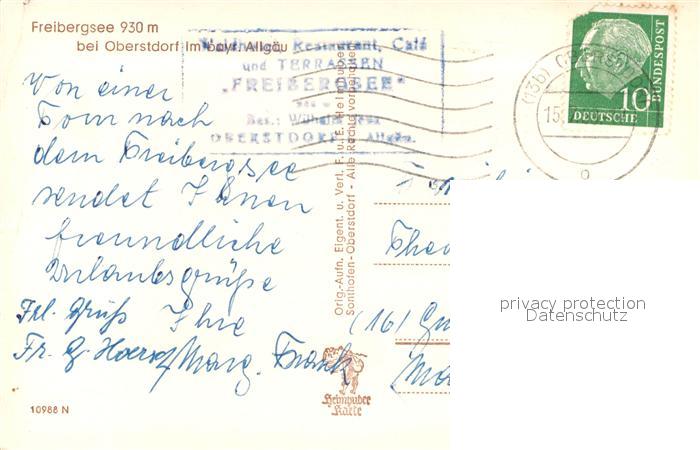 Freibergsee 930 m
bei Oberstdorf im bayr. Allgäu
Restaurant, Café
und TERRASSEN
„FREIBERGSEE“
Bes.: Wilhelm
OBERSTDORF Allgäu.
(13b) OBERSTD
15.
a
10
DEUTSCHE
BUNDESPOST
Von einer
Tour nach
dem Freibergsee
sendet Ihnen
freundliche
Urlaubsgrüße
Frl. Gruß Ihre
Fr. G. Marg. Frank
Orig.-Aufn. Eigent. u. Verl. F. u. E. Heimhuber
Sonthofen-Oberstdorf - Alle Rechte vorbehalten
(16)
privacy protection
Datenschutz
Heimhuber
Karte
10988 N